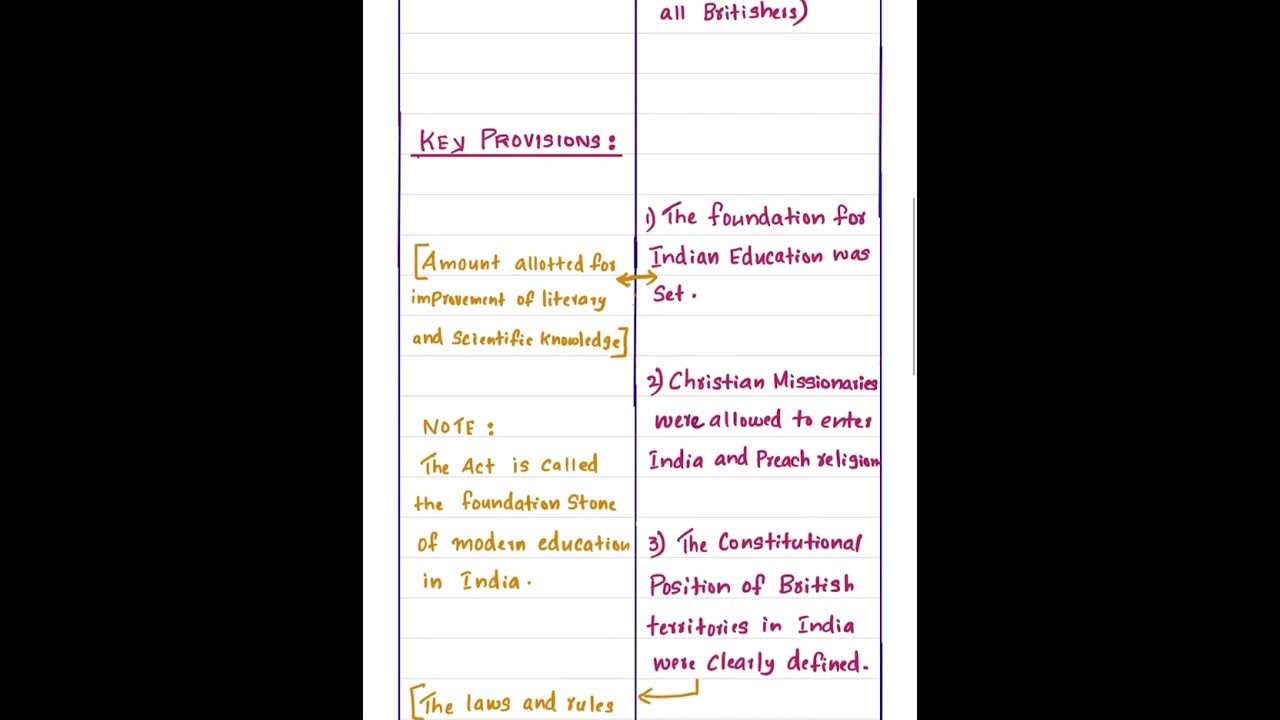 all Britishers)
KEY PROVISIONS:
1) The foundation for
Indian Education was
Set.
[Amount allotted for
improvement of literary
and Scientific Knowledge]
2) Christian Missionaries
were allowed to enter
India and Preach religion
NOTE:
The Act is called
the foundation Stone
of modern education
in India.
3) The Constitutional
Position of British
territories in India
were Clearly defined.
[The laws and rules